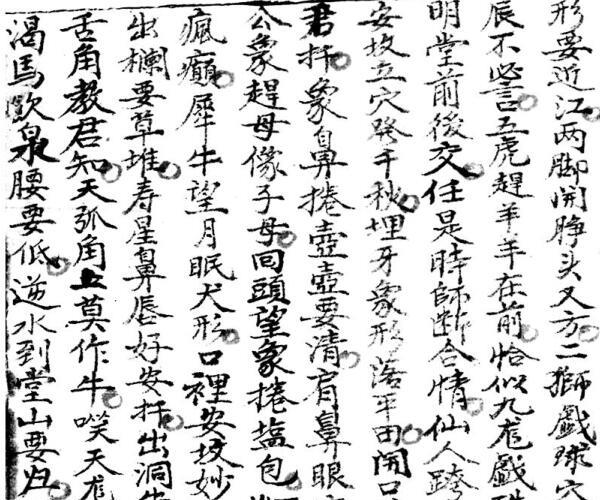 形要近江两脚開睁头叉方二獅戲球穴
辰不必言五虎趕羊羊在前恰似九龙戲
明堂前後交任是時師断合情仙人跨
安坟立穴発千秋埋牙象形落平田開口
君扦象鼻捲壺壺要清肩鼻眼
公象趕母像子母回頭望象捲塩包
瘋癲犀牛望月眠犬形口裡安坟妙
出欄要草堆寿星鼻唇好安扦出洞
舌角教君知天弧角上莫作牛喫天龙
渴馬飲泉腰要低逆水到堂山要归